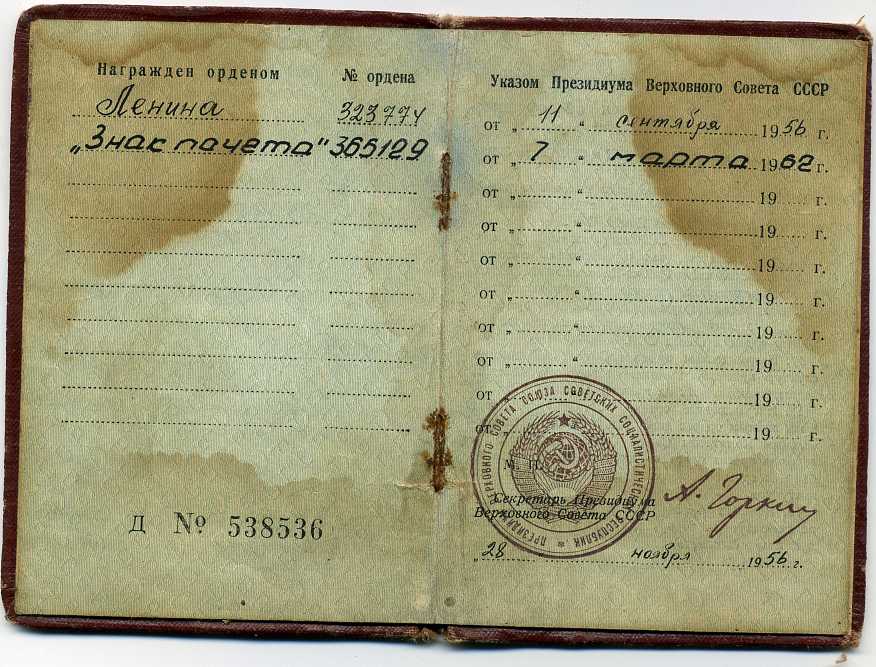 Награжден орденом № ордена
Ленина 323774
„Знак пачета" 365129
Д № 538536
Указом Президиума Верховного Совета СССР
от „ 11 “ сентября 1956 г.
от „ 7 “ марта 1962 г.
от „ “ 19 г.
от „ “ 19 г.
от „ “ 19 г.
от „ “ 19 г.
от „ “ 19 г.
от „ “ 19 г.
от „ “ 19 г.
от „ 19 г.
М. П.
ПРЕЗИДИУМ ВЕРХОВНОГО СОВЕТА СОЮЗА СОВЕТСКИХ СОЦИАЛИСТИЧЕСКИХ РЕСПУБЛИК
Секретарь Президиума
Верховного Совета СССР
А. Горкин
„28 ноября 1956 г.